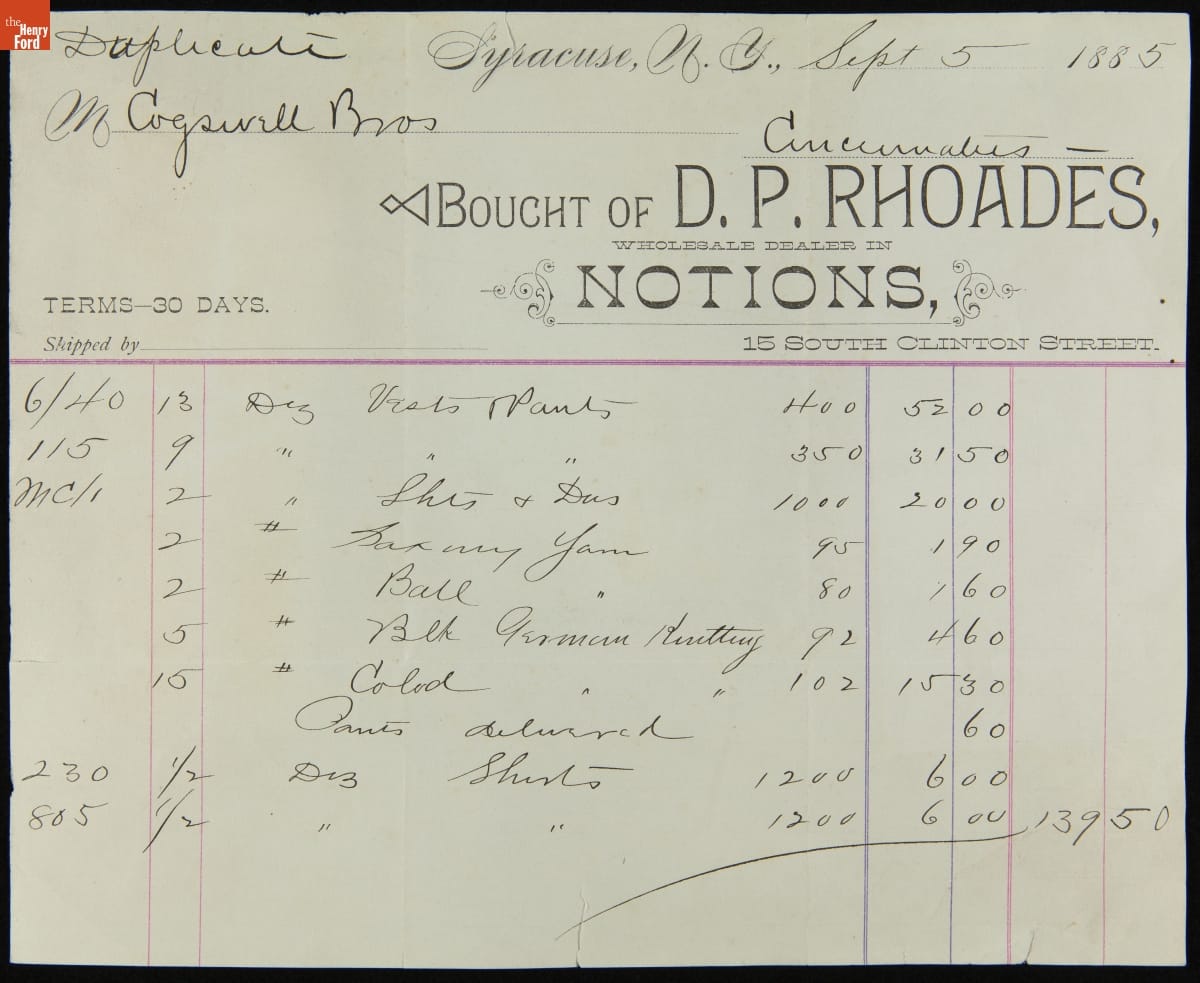 the Henry Ford
Duplicate
Syracuse, N. Y., Sept 5 1885
M Cogswell Bros
Cincinnatus —
BOUGHT OF D. P. RHOADES,
WHOLESALE DEALER IN
NOTIONS,
TERMS—30 DAYS.
Skipped by
15 SOUTH CLINTON STREET.
6/40 13 Doz Vests & Pants 400 52 00
115 9 " " " 350 31 50
MC/1 2 " Shts & Dus 1000 20 00
2 # Saxony Yarn 95 1 90
2 # Ball " 80 1 60
5 # Blk German Knitting 92 4 60
15 # Colod " " 102 15 30
Pants delivered 60
230 1/2 Doz Shirts 1200 6 00
805 1/2 " " 1200 6 00 139 50